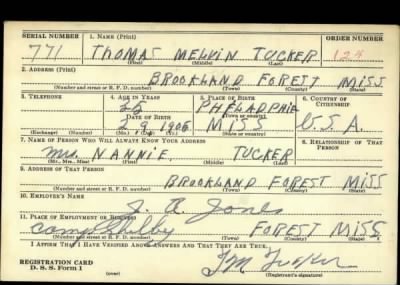 SERIAL NUMBER 1. NAME (Print) ORDER NUMBER
771 THOMAS MELVIN TUCKER 124
(First) (Middle) (Last)
2. ADDRESS (Print)
BROOKLAND FOREST MISS
(Number and street or R. F. D. number) (Town) (County) (State)
3. TELEPHONE 4. AGE IN YEARS 5. PLACE OF BIRTH 6. COUNTRY OF CITIZENSHIP
PHELADPHIE
(Town or county)
DATE OF BIRTH
1905 MISS U.S.A.
(Exchange) (Number) (Mo.) (Day) (Yr.) (State or country)
7. NAME OF PERSON WHO WILL ALWAYS KNOW YOUR ADDRESS 8. RELATIONSHIP OF THAT PERSON
Mrs. NANNIE TUCKER
(Mr., Mrs., Miss) (First) (Middle) (Last)
9. ADDRESS OF THAT PERSON
BROOKLAND FOREST MISS
(Number and street or R. F. D. number) (Town) (County) (State)
10. EMPLOYER'S NAME
J. A. Jones
11. PLACE OF EMPLOYMENT OR BUSINESS
Camp Shelby FOREST MISS
(Number and street or R. F. D. number) (Town) (County) (State)
I AFFIRM THAT I HAVE VERIFIED ABOVE ANSWERS AND THAT THEY ARE TRUE.
REGISTRATION CARD
D. S. S. Form 1 (over) T M Tucker
(Registrant's signature)